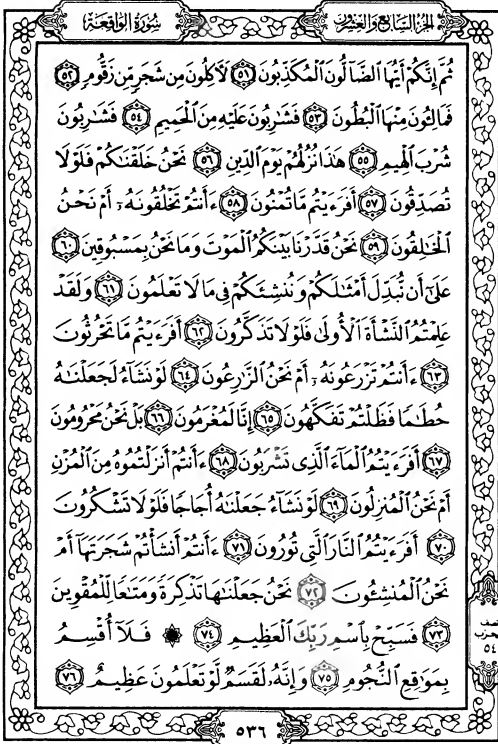 الجزء السابع والعشرون
سورة الواقعة
ثُمَّ إِنَّكُمْ أَيُّهَا ٱلضَّآلُّونَ ٱلْمُكَذِّبُونَ ٥١ لَـَٔاكِلُونَ مِن شَجَرٍ مِّن زَقُّومٍ ٥٢
فَمَالِـُٔونَ مِنْهَا ٱلْبُطُونَ ٥٣ فَشَٰرِبُونَ عَلَيْهِ مِنَ ٱلْحَمِيمِ ٥٤ فَشَٰرِبُونَ
شُرْبَ ٱلْهِيمِ ٥٥ هَٰذَا نُزُلُهُمْ يَوْمَ ٱلدِّينِ ٥٦ نَحْنُ خَلَقْنَٰكُمْ فَلَوْلَا
تُصَدِّقُونَ ٥٧ أَفَرَءَيْتُم مَّا تُمْنُونَ ٥٨ ءَأَنتُمْ تَخْلُقُونَهُۥٓ أَمْ نَحْنُ
ٱلْخَٰلِقُونَ ٥٩ نَحْنُ قَدَّرْنَا بَيْنَكُمُ ٱلْمَوْتَ وَمَا نَحْنُ بِمَسْبُوقِينَ ٦٠
عَلَىٰٓ أَن نُّبَدِّلَ أَمْثَٰلَكُمْ وَنُنشِئَكُمْ فِى مَا لَا تَعْلَمُونَ ٦١ وَلَقَدْ
عَلِمْتُمُ ٱلنَّشْأَةَ ٱلْأُولَىٰ فَلَوْلَا تَذَكَّرُونَ ٦٢ أَفَرَءَيْتُم مَّا تَحْرُثُونَ
٦٣ ءَأَنتُمْ تَزْرَعُونَهُۥٓ أَمْ نَحْنُ ٱلزَّٰرِعُونَ ٦٤ لَوْ نَشَآءُ لَجَعَلْنَٰهُ
حُطَٰمًا فَظَلْتُمْ تَفَكَّهُونَ ٦٥ إِنَّا لَمُغْرَمُونَ ٦٦ بَلْ نَحْنُ مَحْرُومُونَ
٦٧ أَفَرَءَيْتُمُ ٱلْمَآءَ ٱلَّذِى تَشْرَبُونَ ٦٨ ءَأَنتُمْ أَنزَلْتُمُوهُ مِنَ ٱلْمُزْنِ
أَمْ نَحْنُ ٱلْمُنزِلُونَ ٦٩ لَوْ نَشَآءُ جَعَلْنَٰهُ أُجَاجًا فَلَوْلَا تَشْكُرُونَ
٧٠ أَفَرَءَيْتُمُ ٱلنَّارَ ٱلَّتِى تُورُونَ ٧١ ءَأَنتُمْ أَنشَأْتُمْ شَجَرَتَهَآ أَمْ
نَحْنُ ٱلْمُنشِـُٔونَ ٧٢ نَحْنُ جَعَلْنَٰهَا تَذْكِرَةً وَمَتَٰعًا لِّلْمُقْوِينَ
٧٣ فَسَبِّحْ بِٱسْمِ رَبِّكَ ٱلْعَظِيمِ ٧٤ ۞ فَلَآ أُقْسِمُ
بِمَوَٰقِعِ ٱلنُّجُومِ ٧٥ وَإِنَّهُۥ لَقَسَمٌ لَّوْ تَعْلَمُونَ عَظِيمٌ ٧٦
الحزب
٥٤
٥٣٦